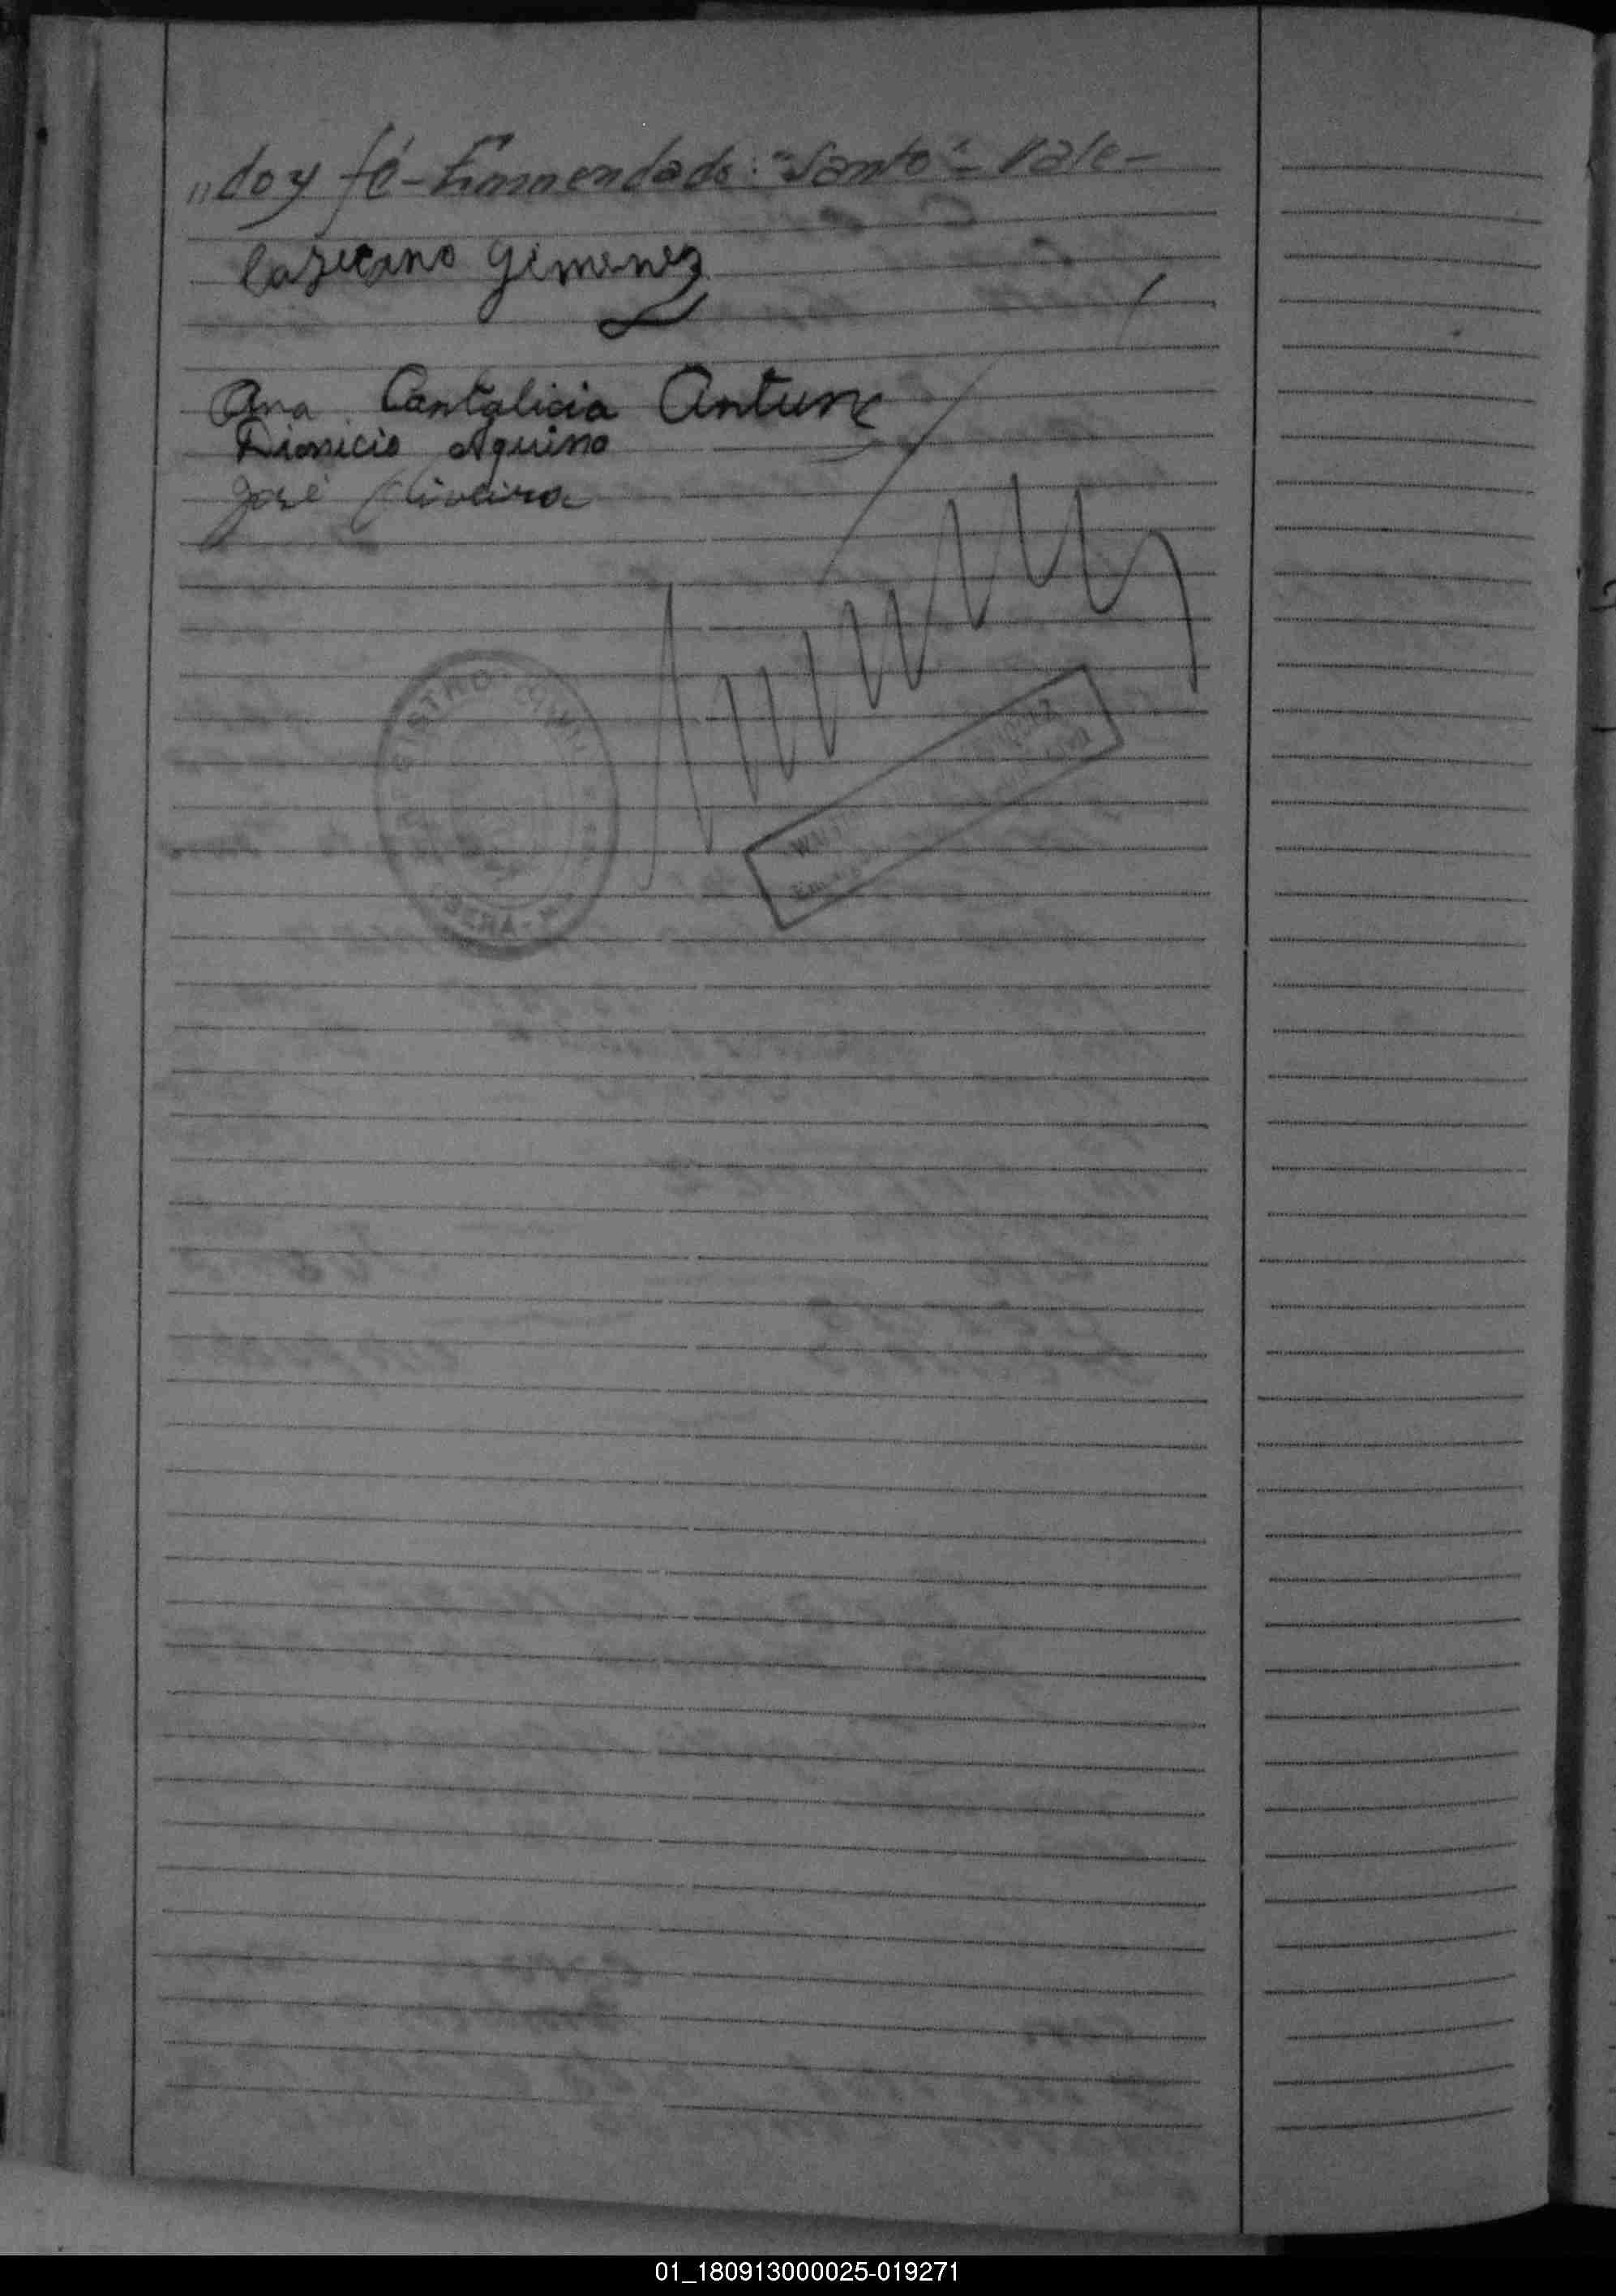 "doy fé - Enmendado: "Santo" - Vale -
Gimenez
Ana Cantalicia Antun
Dionicio Aquino
José Oliveira
REGISTRO CIVIL
01_180913000025-019271